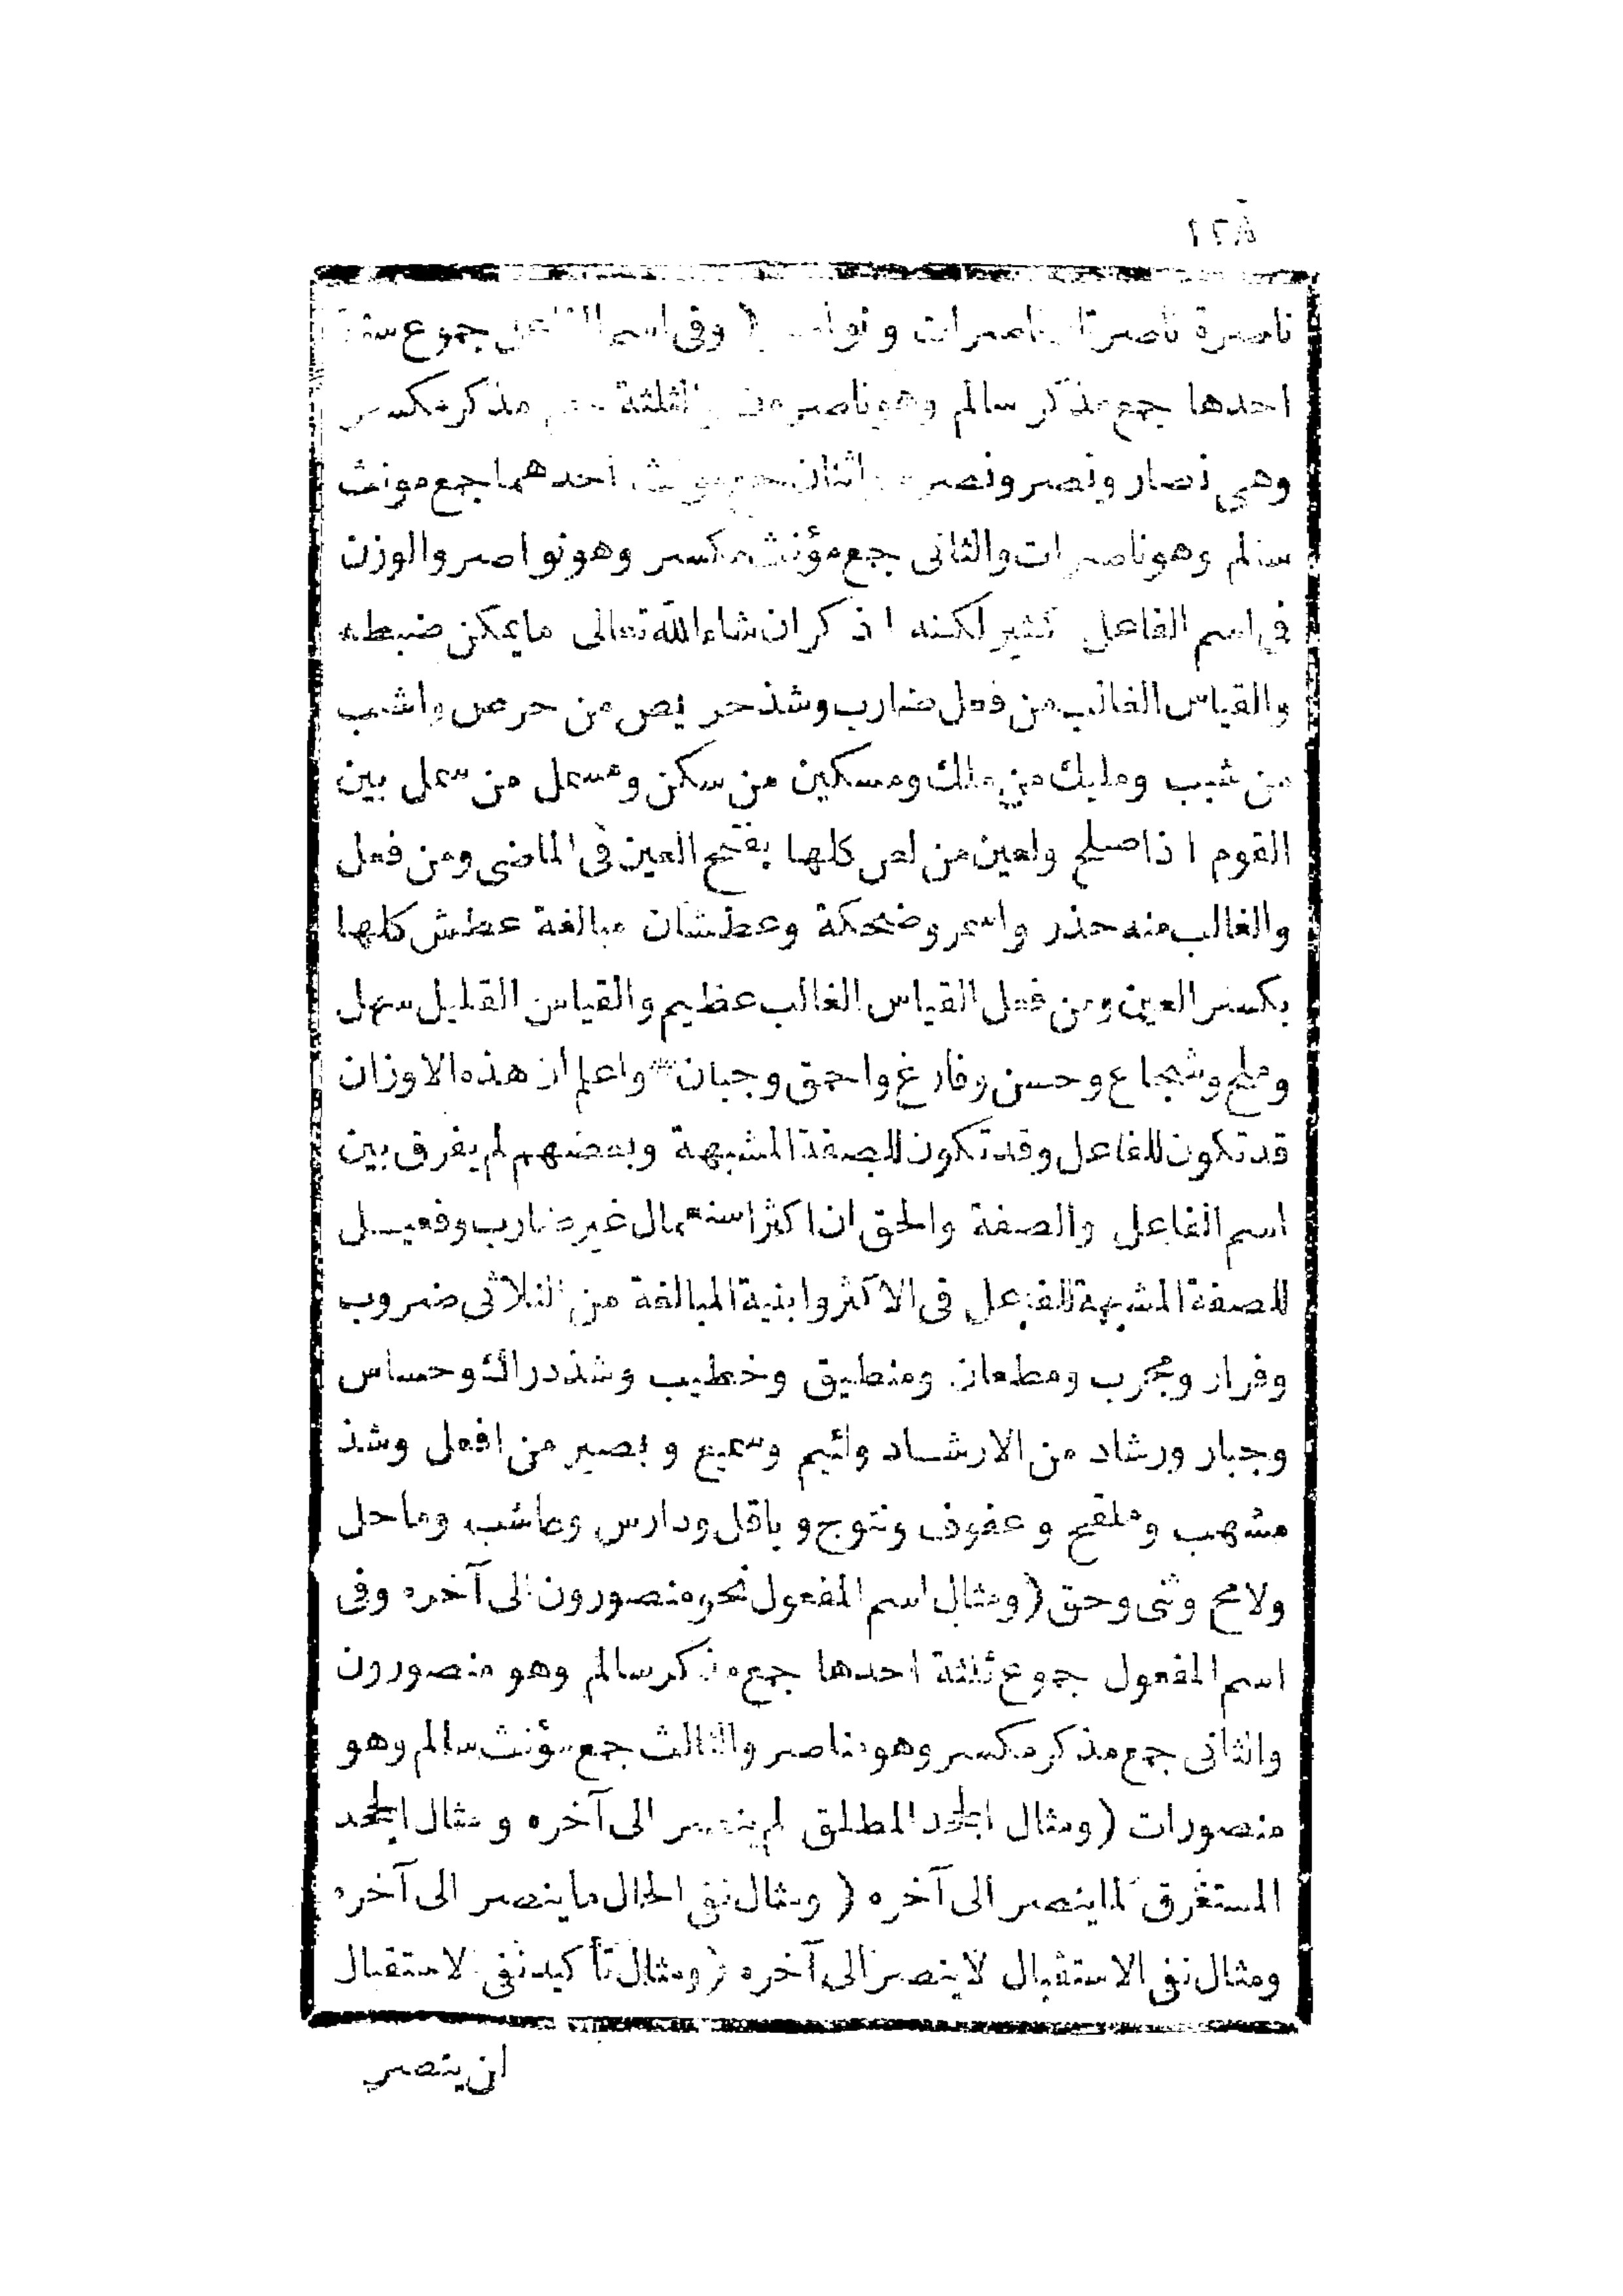 ١٢٨
ناصرة ناصرتان ناصرات و نواصر ( وفى اسم الفاعل جموع ستة
احدها جمع مذكر سالم وهو ناصرون وثلثة جمع مذكر مكسر
وهى نصار ونصر ونصرة واثنان جمع مونث احدهما جمع مونث
سالم وهو ناصرات والثانى جمع مؤنث مكسر وهو نواصر والوزن
فى اسم الفاعل كثير لكنه اذكر ان شاء الله تعالى ما يمكن ضبطه
والقياس الغالب من فعل ضارب وشذ حريص من حرص واشيب
من شيب ومليك من ملك ومسكين من سكن ومسمل من سمل بين
القوم اذا صلح ولعين من لعن كلها بفتح العين فى الماضى ومن فعل
والغالب منه حذر واسمر وضحكة وعطشان مبالغة عطش كلها
بكسر العين ومن فعل القياس الغالب عظيم والقياس القليل سهل
وملح وشجاع وحسن وفارغ واحمق وجبان * واعلم ان هذه الاوزان
قد تكون للفاعل وقد تكون للصفة المشبهة وبعضهم لم يفرق بين
اسم الفاعل والصفة والحق ان اكثر استعمال غير ضارب وفعيل
للصفة المشبهة للفاعل فى الاكثر وابنية المبالغة من الثلاثى ضروب
وفرار ومجرب ومطعان ومنطيق وخطيب وشذ دراك وحساس
وجبار ورشاد من الارشاد واثيم وسميع و بصير من افعل وشذ
مشهب وملقح و عفوف ونتوج و باقل ودارس وعاشب وماحل
ولامح وثنى وحق ( ومثال اسم المفعول نحو منصورون الى آخره وفى
اسم المفعول جموع ثلثة احدها جمع مذكر سالم وهو منصورون
والثانى جمع مذكر مكسر وهو مناصر والثالث جمع مؤنث سالم وهو
منصورات ( ومثال الجحد المطلق لم ينصر الى آخره و مثال الجحد
المستغرق لما ينصر الى آخره ( ومثال نفى الحال ما ينصر الى آخره
ومثال نفى الاستقبال لا ينصر الى آخره ( ومثال تأكيد نفى الاستقبال
لن ينصر